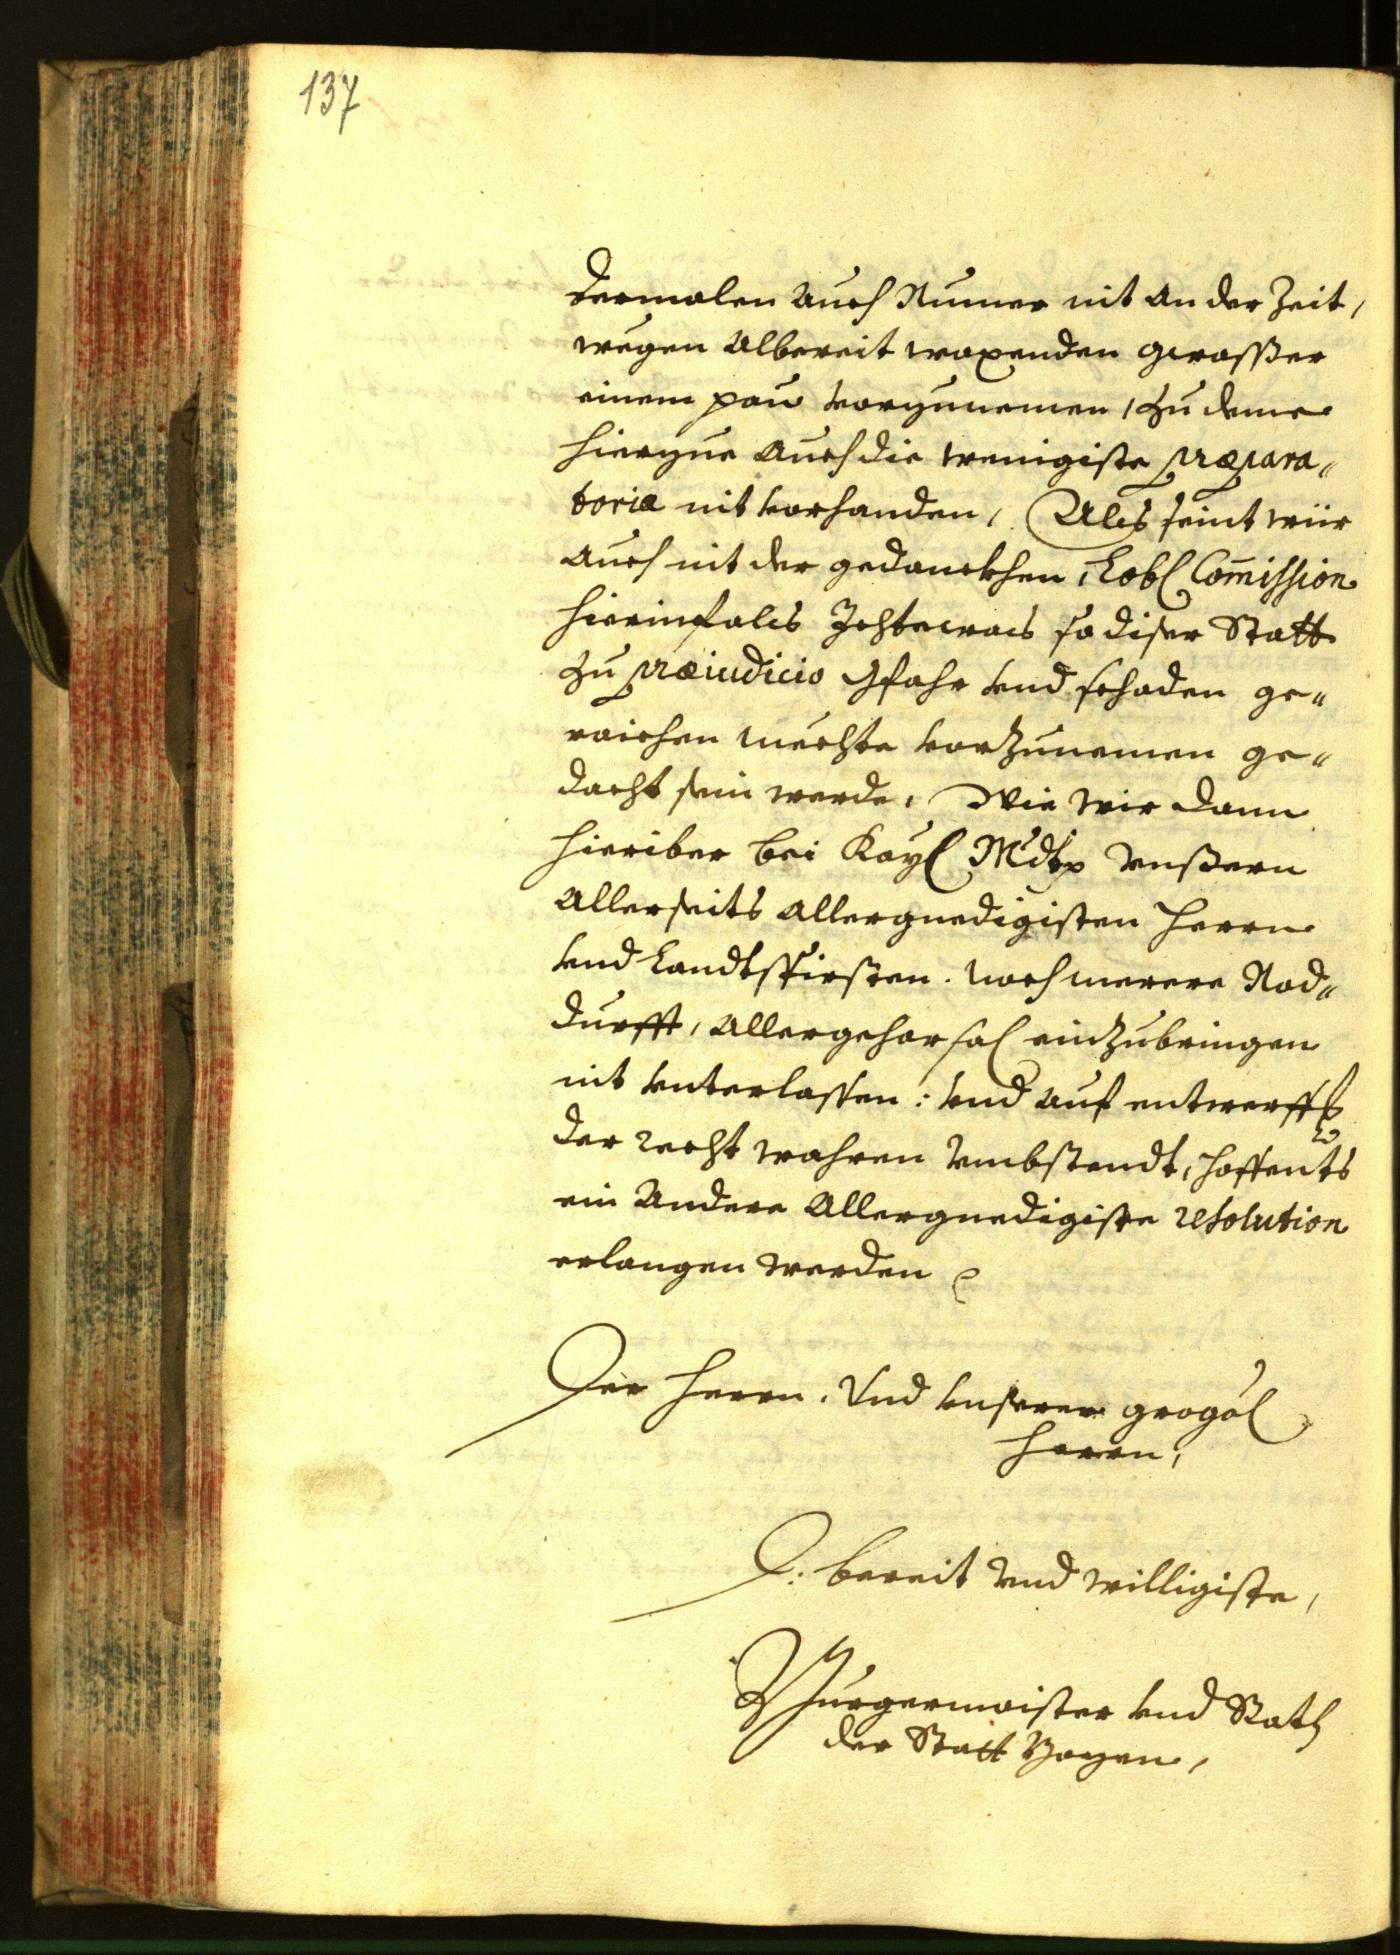 137
dermalen Auch Numer nit an der Zeit,
wegen Albereit waxenden gwasser
einem pau vorzunemen, Zu deme
hierzue Auch die wenigiste præpara„
toria nit vorhanden, Als seint wür
Auch nit der gedanckhen, Lobl Com̄ission
hierinfals Ichtwas so diser Statt
Zu præiudicio Gfahr und schaden ge„
raichen mechte vorzunemen ge„
dacht sein werde, Wie wir dann
hieriber bei Kayl Mdt vnßern
Allerseits Allergnedigisten Herrn
vnd Landtsfirsten. noch merere Nod„
durfft, Allergehorsal einzubringen
nit vnterlassen: vnd auf entwerffg
der recht wahren Vmbstendt, hoffents
ein Andere Allergnedigiste resolution
erlangen werden
Der Herrn. Vnd vnserer grogol
Herrn,
D: bereit vnd willigiste,
Burgermaister vnd Rath
der Statt Bozen,